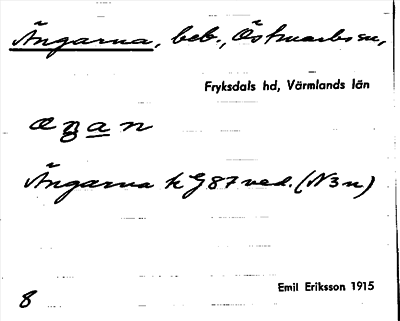 Ängarna, beb., Östmarks sn,
Fryksdals hd, Värmlands län
Ängarna k G87 ved. (N3n)
Emil Eriksson 1915
8